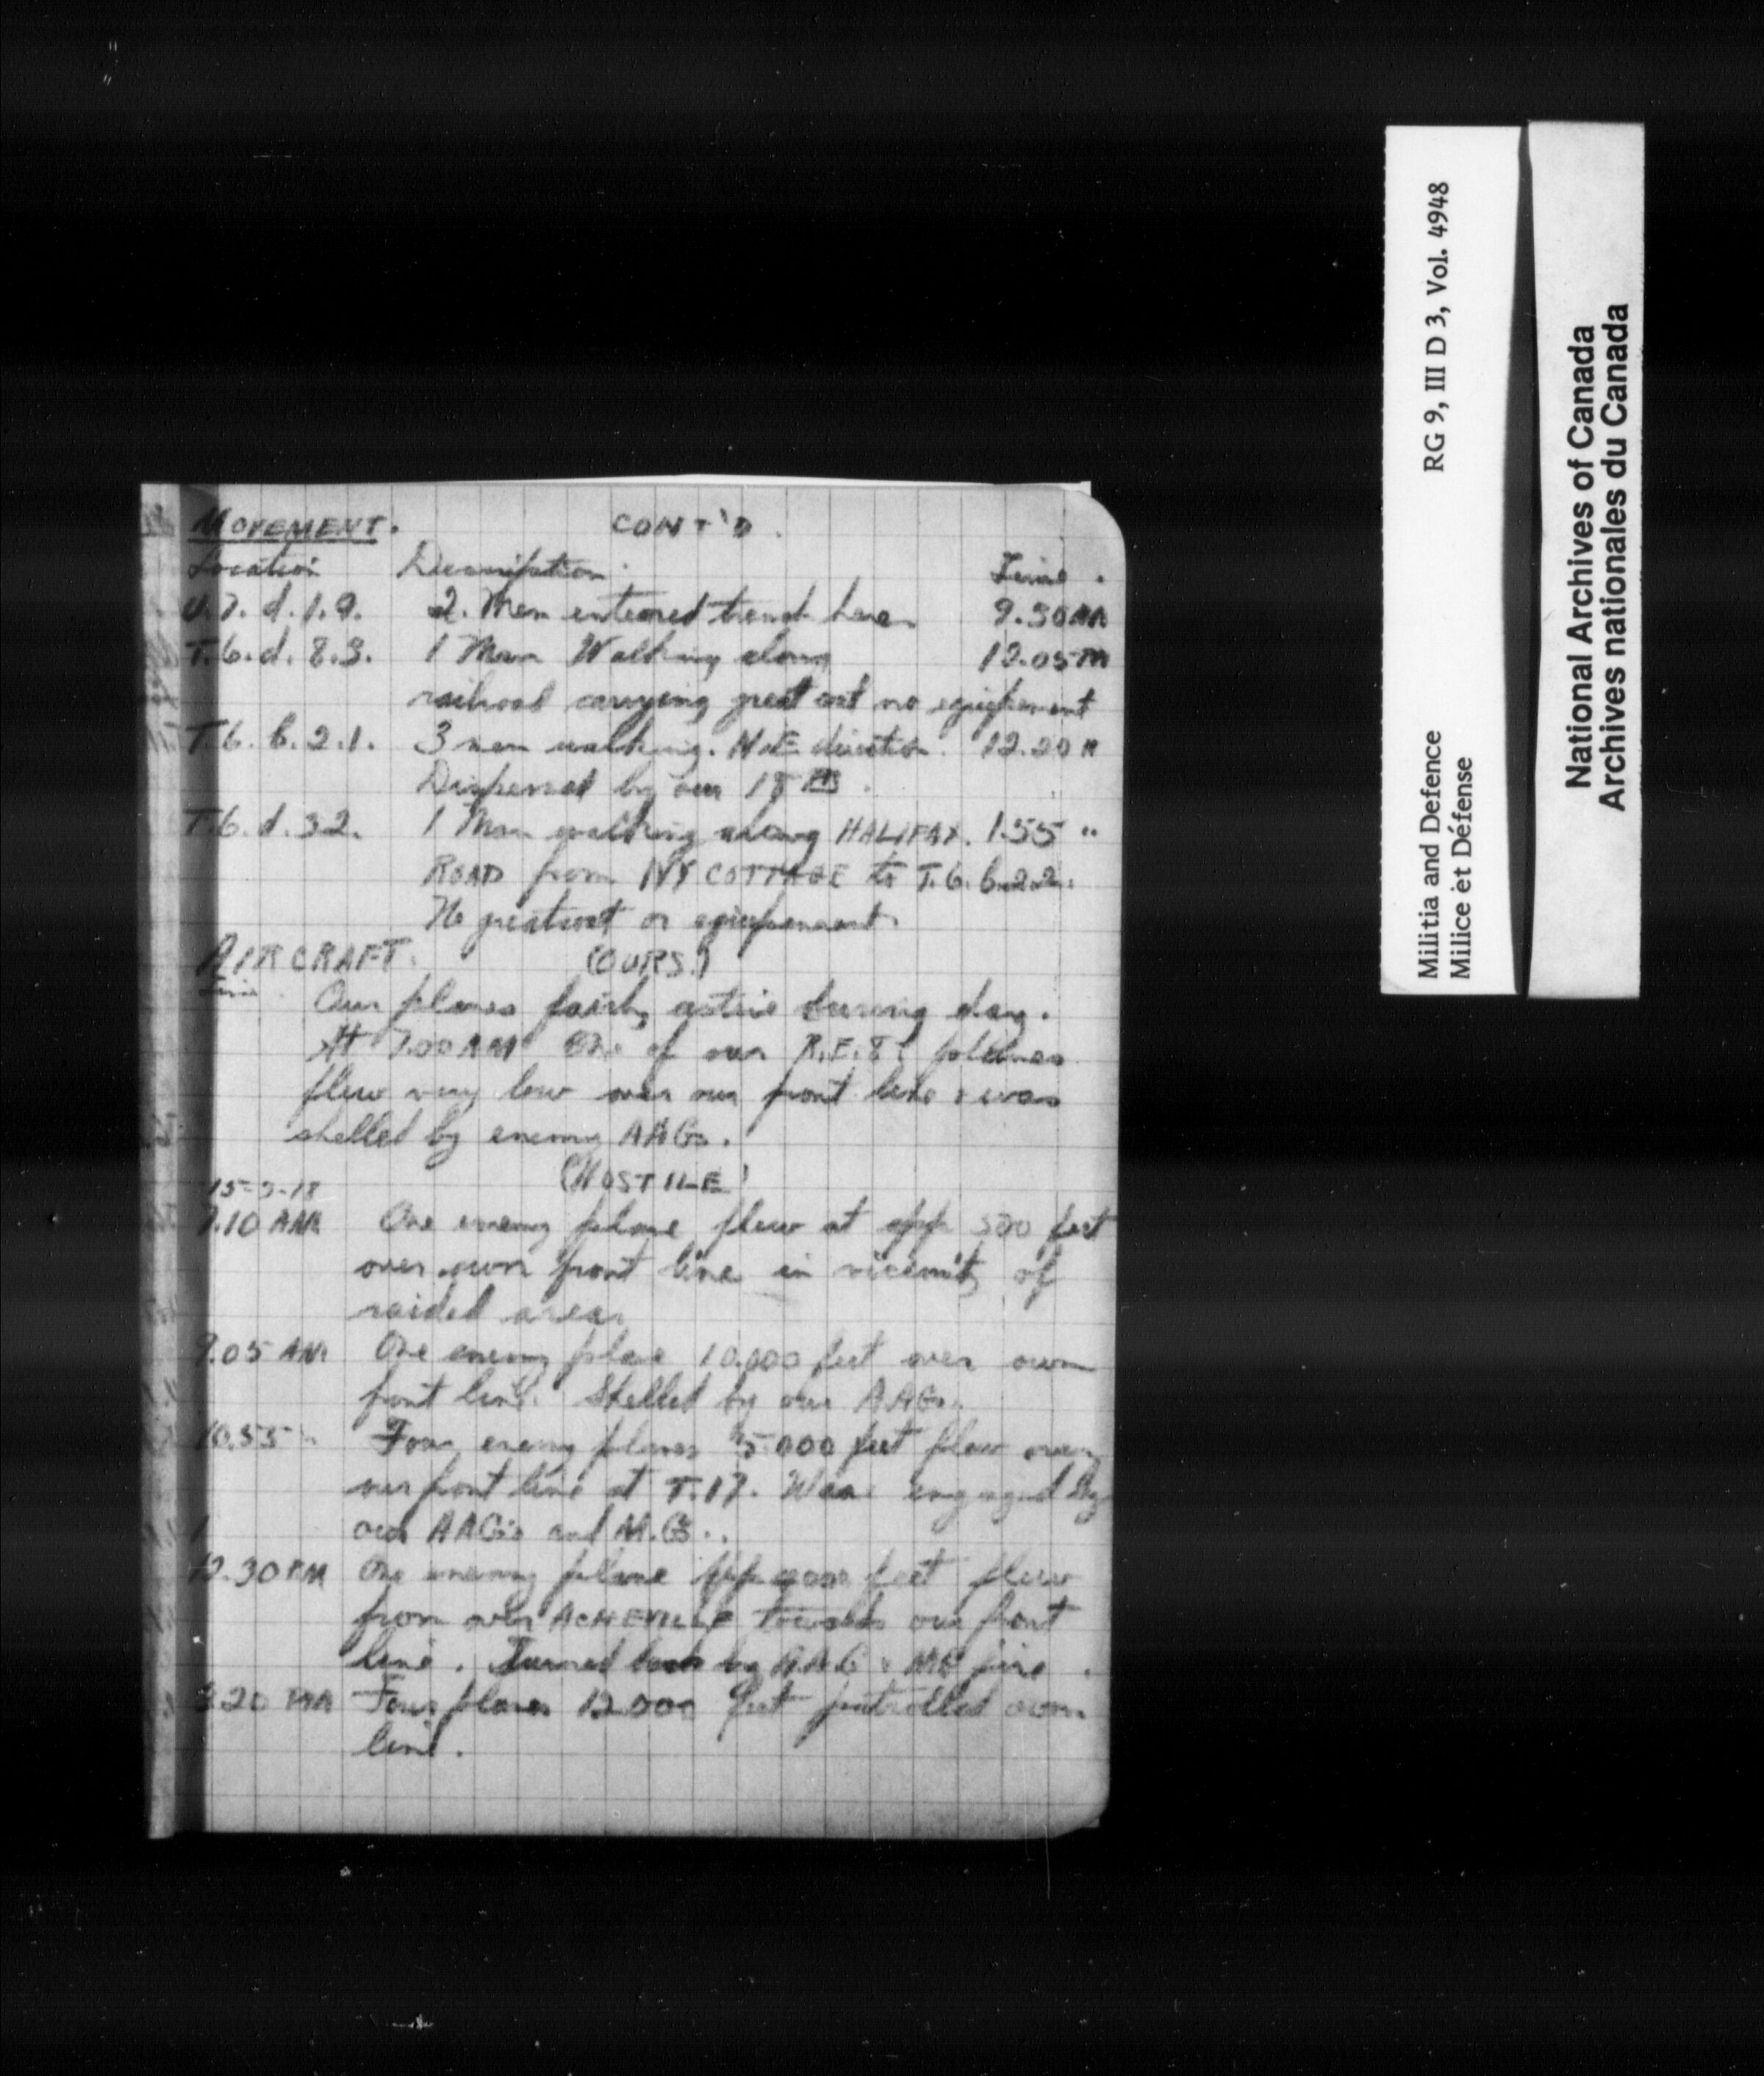 MOVEMENT. CONT'D.
Location Description. Time.
U.7.d.1.9. 2. Men entered trench here. 9.30 AM
T.6.d.8.3. 1 Man Walking along 12.05 PM
railroad carrying great coat no equipment
T.6.b.2.1. 3 men walking. N.E. direction. 12.20
Dispersed by our 18
T.6.d.32. 1 Man walking along HALIFAX. 1.55 "
ROAD from COTTAGE to T.6.b.2.2.
No greatcoat or equipment.
AIRCRAFT. (OURS.)
Time
Our planes fairly active during day.
At 7.00 AM One of our R.E.8s planes
flew very low over our front line & was
shelled by enemy AAGs.
(HOSTILE)
7.10 AM One enemy plane flew at app 500 feet
over own front line in vicinity of
raided area
9.05 AM One enemy plane 10,000 feet over own
front line. Shelled by our AAGs.
10.55 " Four enemy planes 5000 feet flew over
our front line at T.17. Were engaged by
our AAGs and M.Gs..
12.30 PM One enemy plane app feet flew
from over ACHEVILLE towards our front
line. Turned back by AAG & MG fire.
3.20 PM Four planes 12000 feet patrolled own
line.
Militia and Defence RG 9, III D 3, Vol. 4948
Milice et Défense
National Archives of Canada
Archives nationales du Canada